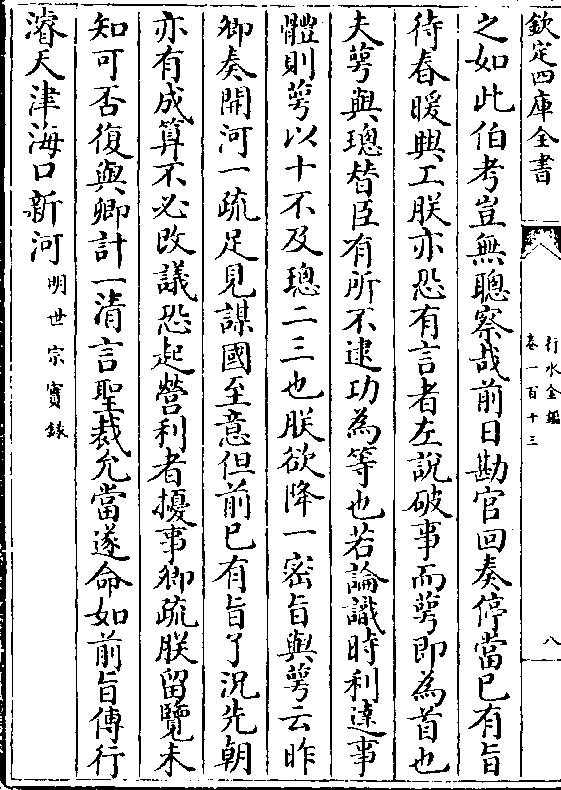 欽定四庫全書
行水金鑑
卷一百十三
八
之如此伯考豈無聰察哉前日勘官回奏停當已有旨
待春暖興工朕亦恐有言者左說破事而萼即為首也
夫萼與璁替臣有所不逮功為等也若論識時利達事
體則萼以十不及璁二三也朕欲降一密旨與萼云昨
卿奏開河一疏足見謀國至意但前已有旨了況先朝
亦有成算不必改議恐起營利者擾事卿疏朕留覽未
知可否復與卿計一清言聖裁允當遂命如前旨傳行
濬天津海口新河
明世宗實錄